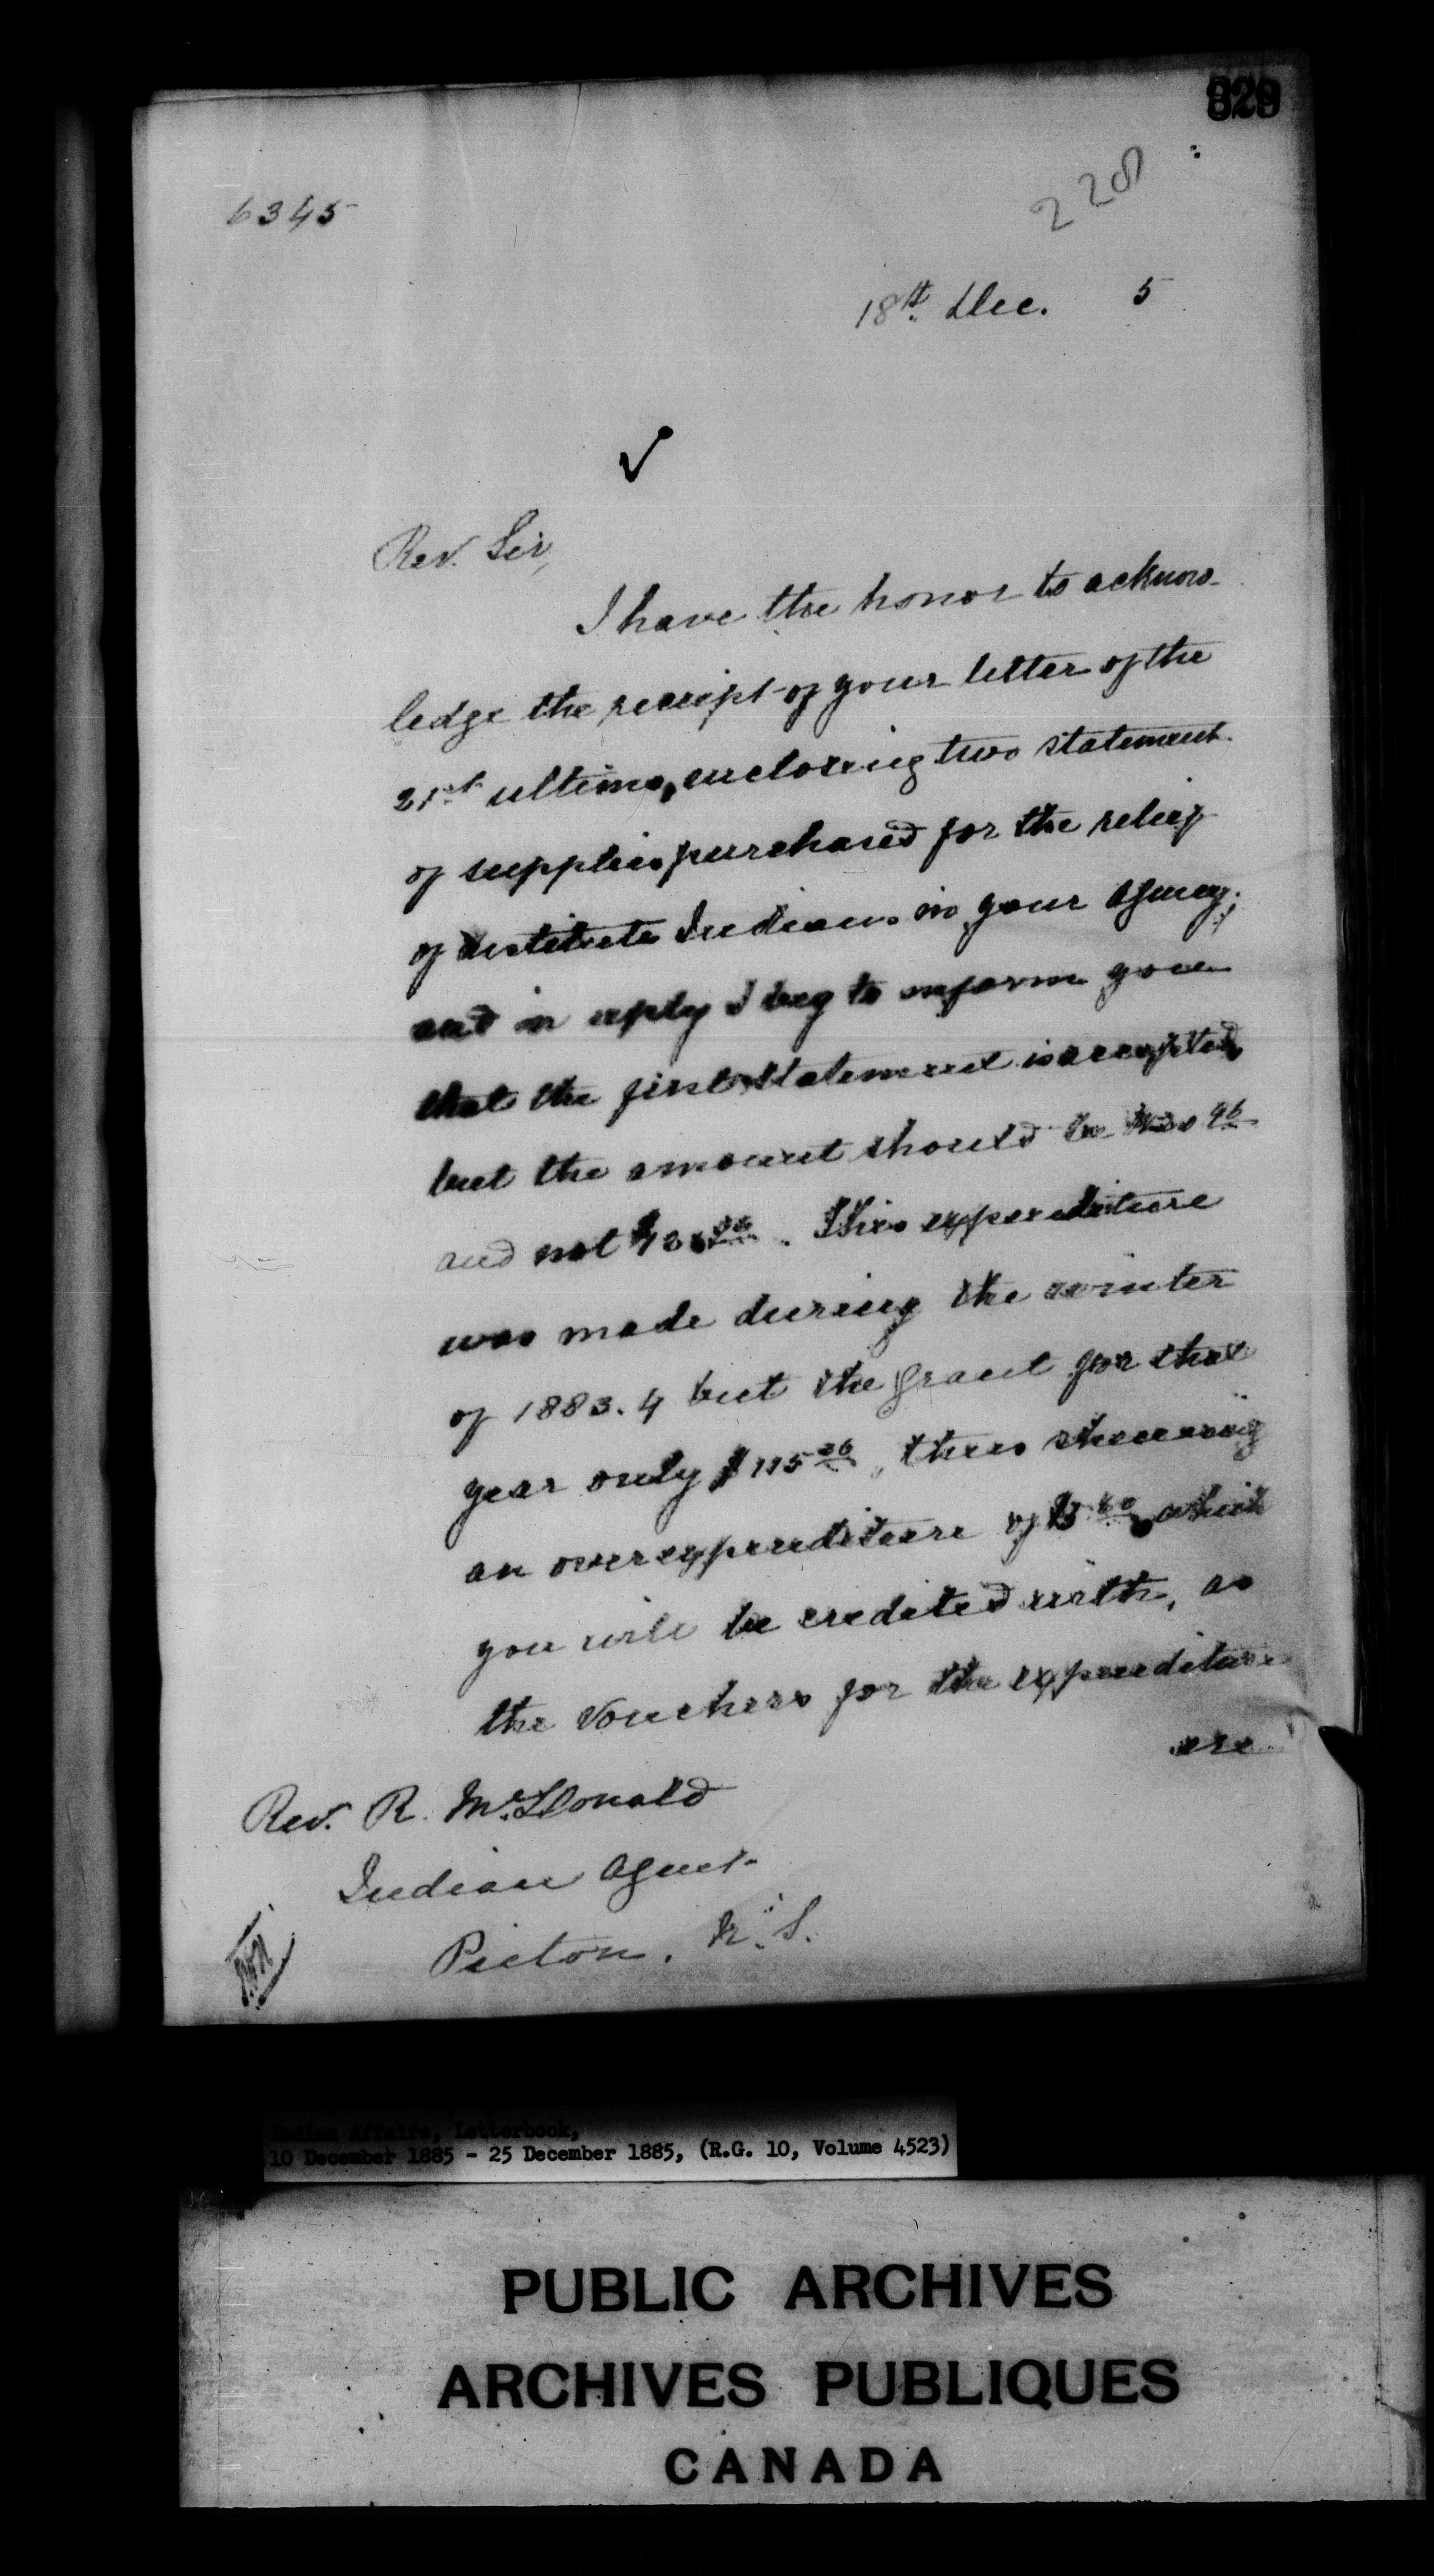 329
220
6345
18th Dec. 5
Rev. Sir,
I have the honor to acknow-
ledge the receipt of your letter of the
21st ultimo, enclosing two statement
of supplies purchased for the relief
of destitute Indians in your Agency;
and in reply I beg to inform you
that the first statement is accepted,
but the amount should be
and not This expenditure
was made during the winter
of 1883.4 but the grant for that
year only $115 36, thus showing
an over expenditure of which
you will be credited with, as
the vouchers for the expenditure
are
Rev. R. McDonald
Indian Agent
Pictou, N.S.
Indian Affairs, Letterbook,
10 December 1885 - 25 December 1885, (R.G. 10, Volume 4523)
PUBLIC ARCHIVES
ARCHIVES PUBLIQUES
CANADA